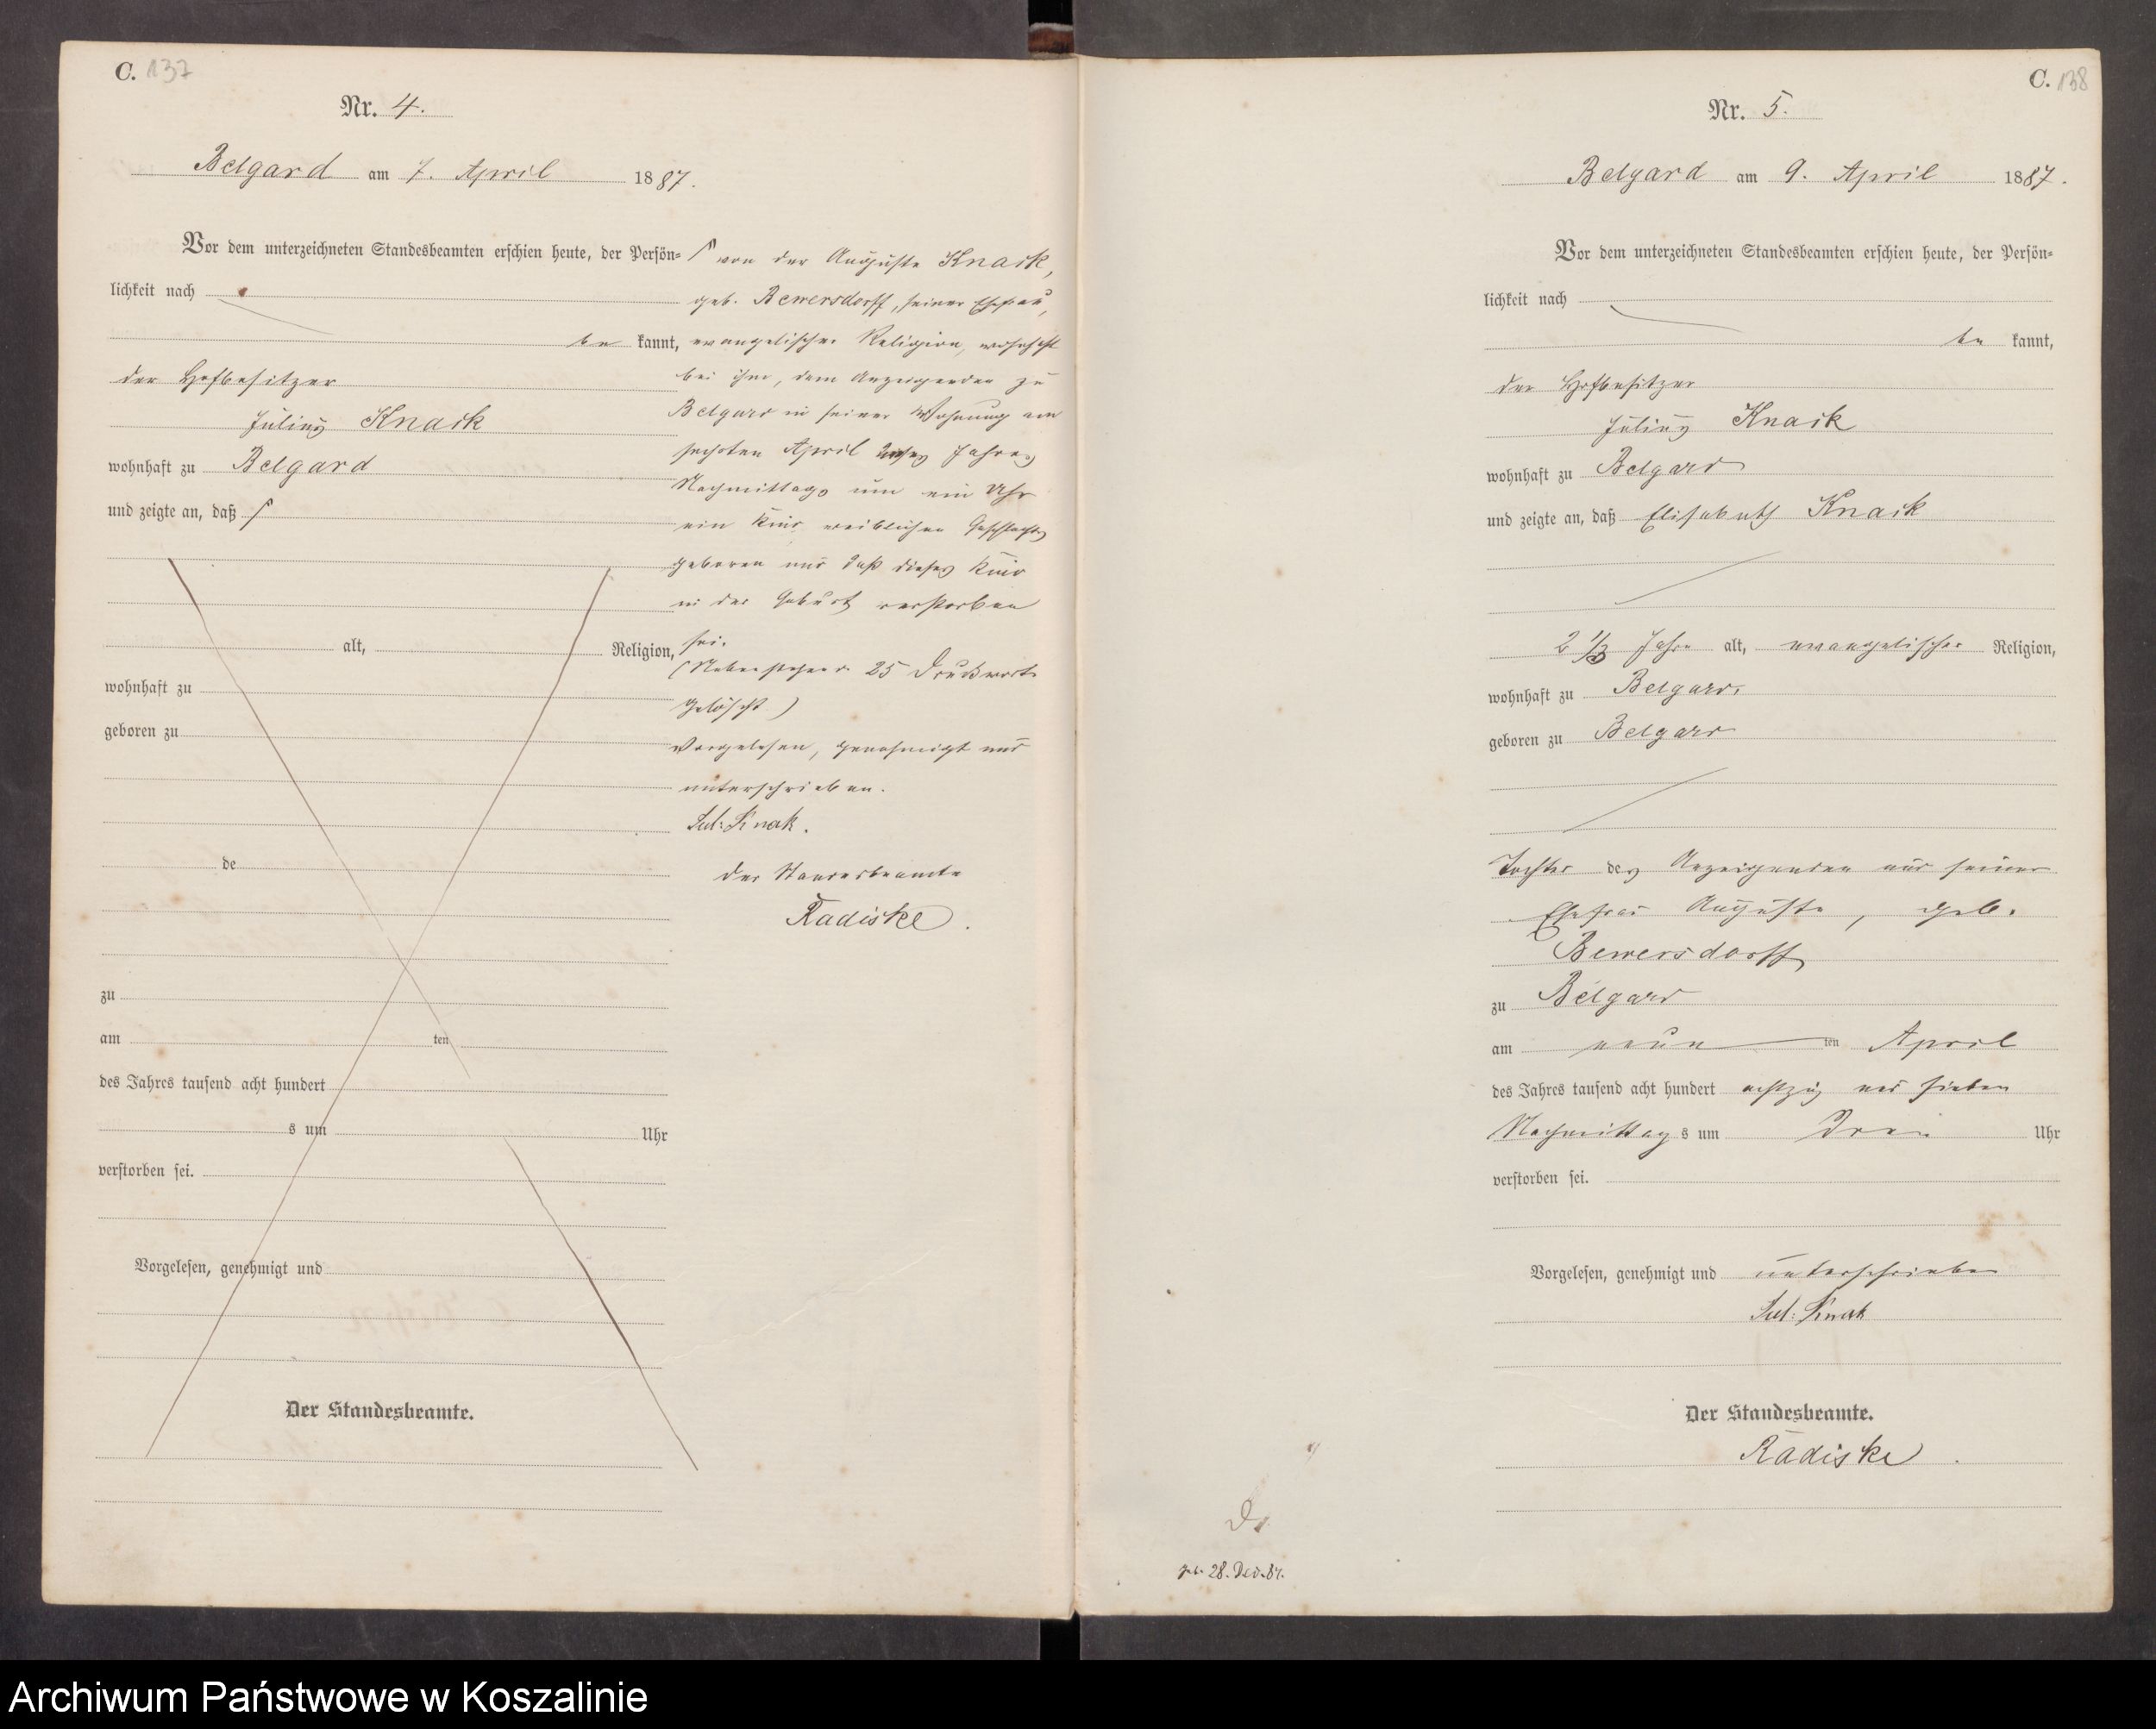 C. 137
Nr. 4.
Belgard am 7. April 1887.
Vor dem unterzeichneten Standesbeamten erschien heute, der Persön-
lichkeit nach
be kannt,
der Hofbesitzer
Julius Knack
wohnhaft zu Belgard
und zeigte an, daß
alt, Religion,
wohnhaft zu
geboren zu
de
zu
am ten
des Jahres tausend acht hundert
s um Uhr
verstorben sei.
Vorgelesen, genehmigt und
Der Standesbeamte.
von der Auguste Knack,
geb. Bewersdorff, seiner Ehefrau,
evangelischer Religion, wohnhaft
bei ihm, dem Anzeigenden zu
Belgard in seiner Wohnung am
sechsten April dieses Jahres
Nachmittags um ein Uhr
ein Kind weiblichen Geschlechts
geboren und daß dieses Kind
in der Geburt verstorben
sei.
(Nebenstehende 25 Druckworte
gelöscht)
Vorgelesen, genehmigt und
unterschrieben.
Jul: Knak.
Der Standesbeamte
Radiske.
C. 138
Nr. 5.
Belgard am 9. April 1887.
Vor dem unterzeichneten Standesbeamten erschien heute, der Persön-
lichkeit nach
be kannt,
der Hofbesitzer
Julius Knack
wohnhaft zu Belgard
und zeigte an, daß Elisabeth Knack
2 1/3 Jahre alt, evangelischer Religion,
wohnhaft zu Belgard,
geboren zu Belgard
Tochter des Anzeigenden und seiner
Ehefrau Auguste, geb.
Bewersdorff
zu Belgard
am neun ten April
des Jahres tausend acht hundert achtzig und sieben
Nachmittag s um drei Uhr
verstorben sei.
Vorgelesen, genehmigt und unterschrieben
Jul: Knak
Der Standesbeamte.
Radiske.
28. Dec. 84.
Archiwum Państwowe w Koszalinie